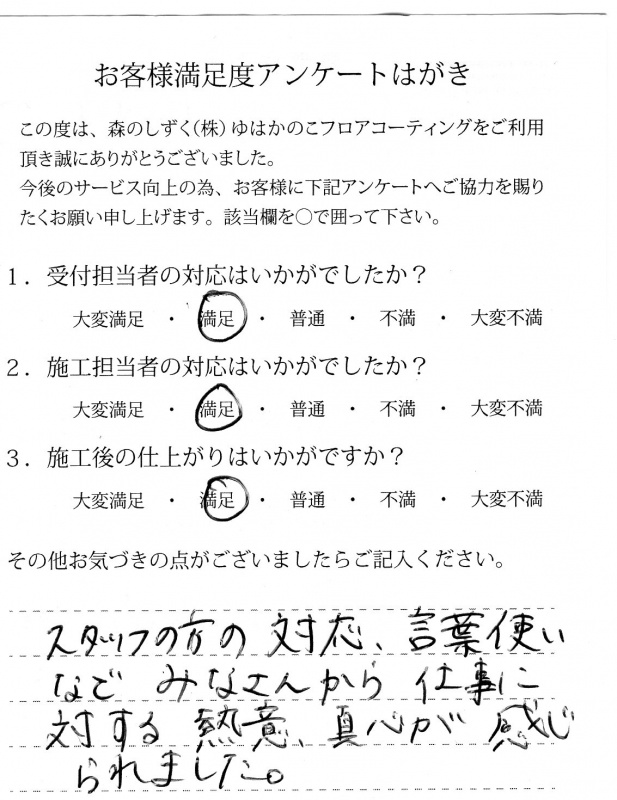 お客様満足度アンケートはがき
この度は、森のしずく(株)ゆはかのこフロアコーティングをご利用
頂き誠にありがとうございました。
今後のサービス向上の為、お客様に下記アンケートへご協力を賜り
たくお願い申し上げます。該当欄を○で囲って下さい。
1．受付担当者の対応はいかがでしたか？
大変満足 ・ 満足 ・ 普通 ・ 不満 ・ 大変不満
2．施工担当者の対応はいかがでしたか？
大変満足 ・ 満足 ・ 普通 ・ 不満 ・ 大変不満
3．施工後の仕上がりはいかがですか？
大変満足 ・ 満足 ・ 普通 ・ 不満 ・ 大変不満
その他お気づきの点がございましたらご記入ください。
スタッフの方の 対応、言葉使い
など みなさんから 仕事に
対する 熱意、真心が 感じ
られました。